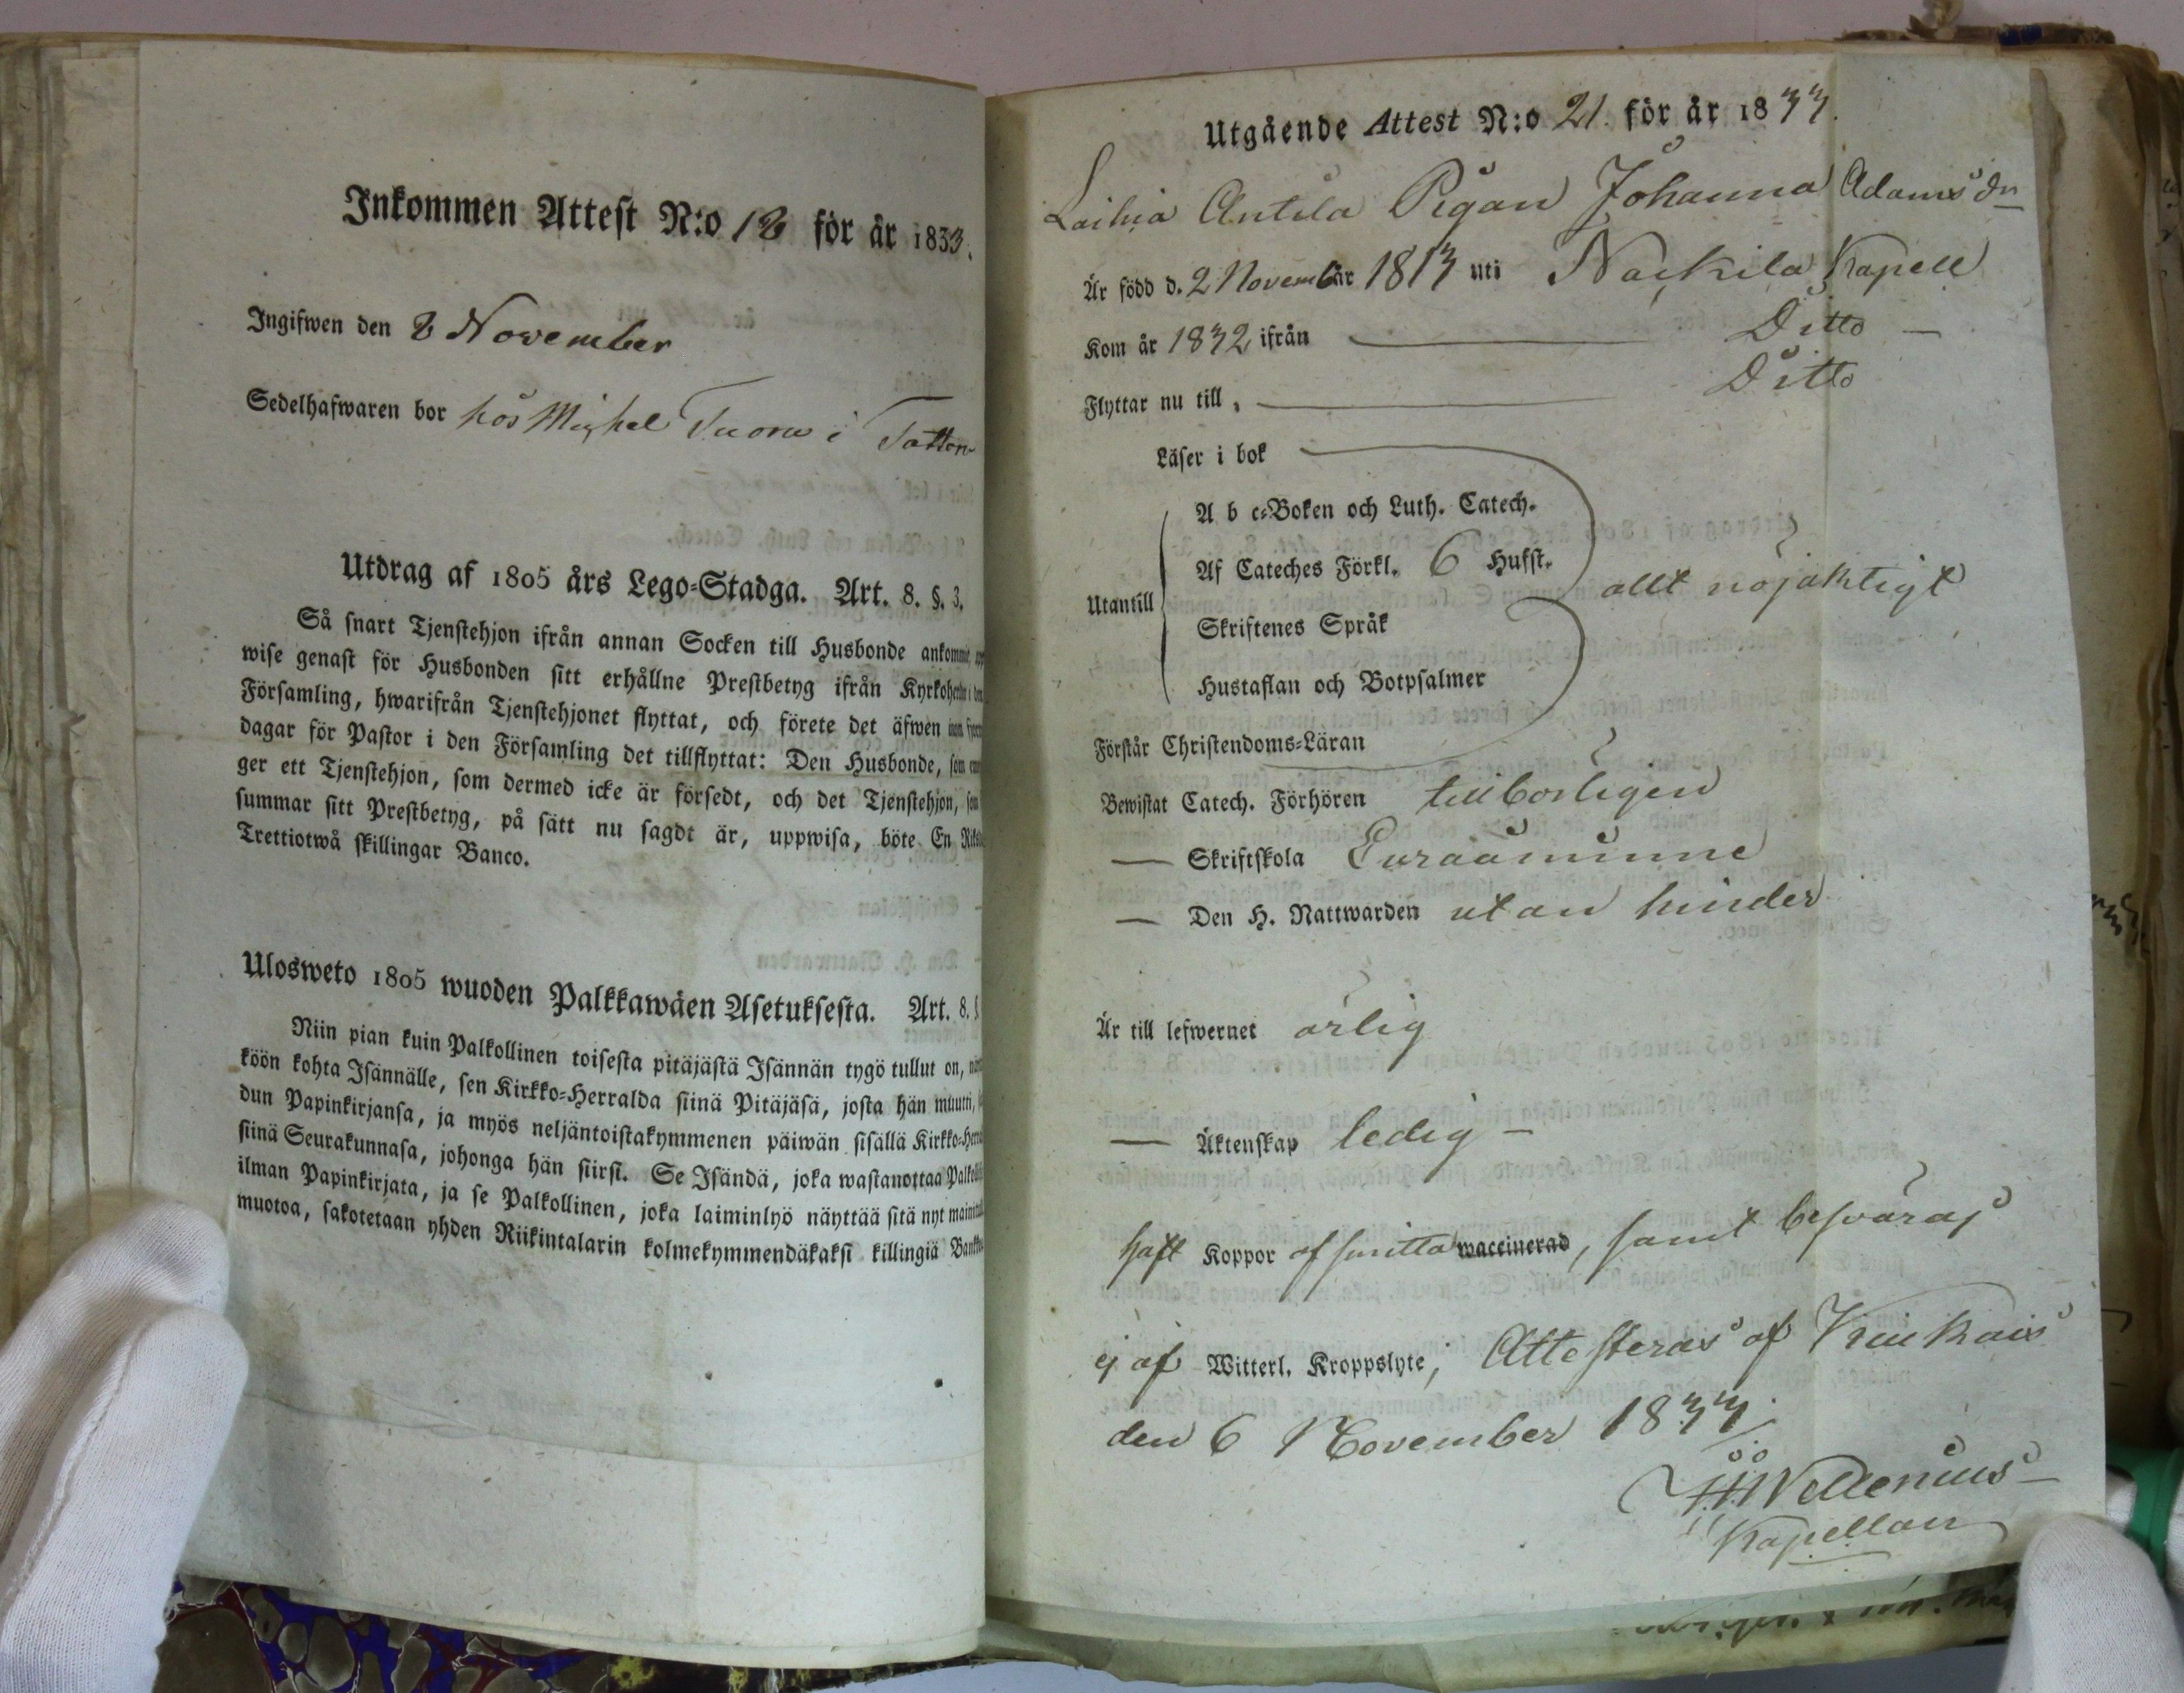 Inkommen Attest N:o 18 för år 1833.
Ingifwen den 8 November
Sedelhafwaren bor hos Michel Tuomi i Tattar
Utdrag af 1805 års Lego-Stadga. Art. 8. §. 3.
Så snart Tjenstehjon ifrån annan Socken till Husbonde ankommit,
wise genast för Husbonden sitt erhållne Prestbetyg ifrån
Församling, hwarifrån Tjenstehjonet flyttat, och förete det äfwen
dagar för Pastor i den Församling det tillflyttat: Den Husbonde, som
ger ett Tjenstehjon, som dermed icke är försedt, och det Tjenstehjon,
summar sitt Prestbetyg, på sätt nu sagdt är, uppwisa, böte En
Trettiotwå skillingar Banco.
Ulosweto 1805 wuoden Palkkawäen Asetuksesta. Art. 8.
Niin pian kuin Palkollinen toisesta pitäjästä Isännän tygö tullut on,
köön kohta Isännälle, sen Kirkko-Herralda siinä Pitäjäsä, josta hän muutti,
dun Papinkirjansa, ja myös neljäntoistakymmenen päiwän sisällä
siinä Seurakunnasa, johonga hän siirsi. Se Isändä, joka wastanottaa
ilman Papinkirjata, ja se Palkollinen, joka laiminlyö näyttää sitä nyt
muotoa, sakotetaan yhden Riikintalarin kolmekymmendäkaksi killingiä
Utgående Attest N:o 21. för år 1833.
Laihia Antila Pigan Johanna Adamsdr
Är född d. 2 November 1813 uti Nackila Kapell
Kom år 1832 ifrån Ditto
Flyttar nu till, Ditto
Läser i bok
A b c-Boken och Luth. Catech.
Af Cateches Förkl. 6 Hufst.
allt nöjaktigt
Utantill
Skriftenes Språk
Hustaflan och Botpsalmer
Förstår Christendoms-Läran
Bewistat Catech. Förhören tillbörligen
— Skriftskola Euraåminne
— Den H. Nattwarden utan hinder
Är till lefwernet ärlig
— Äktenskap ledig —
haft Koppor af smitta waccinerad, samt besväras
ej af Witterl. Kroppslyte; Attesteras af Kiukais
den 6 November 1833.
Kapellan